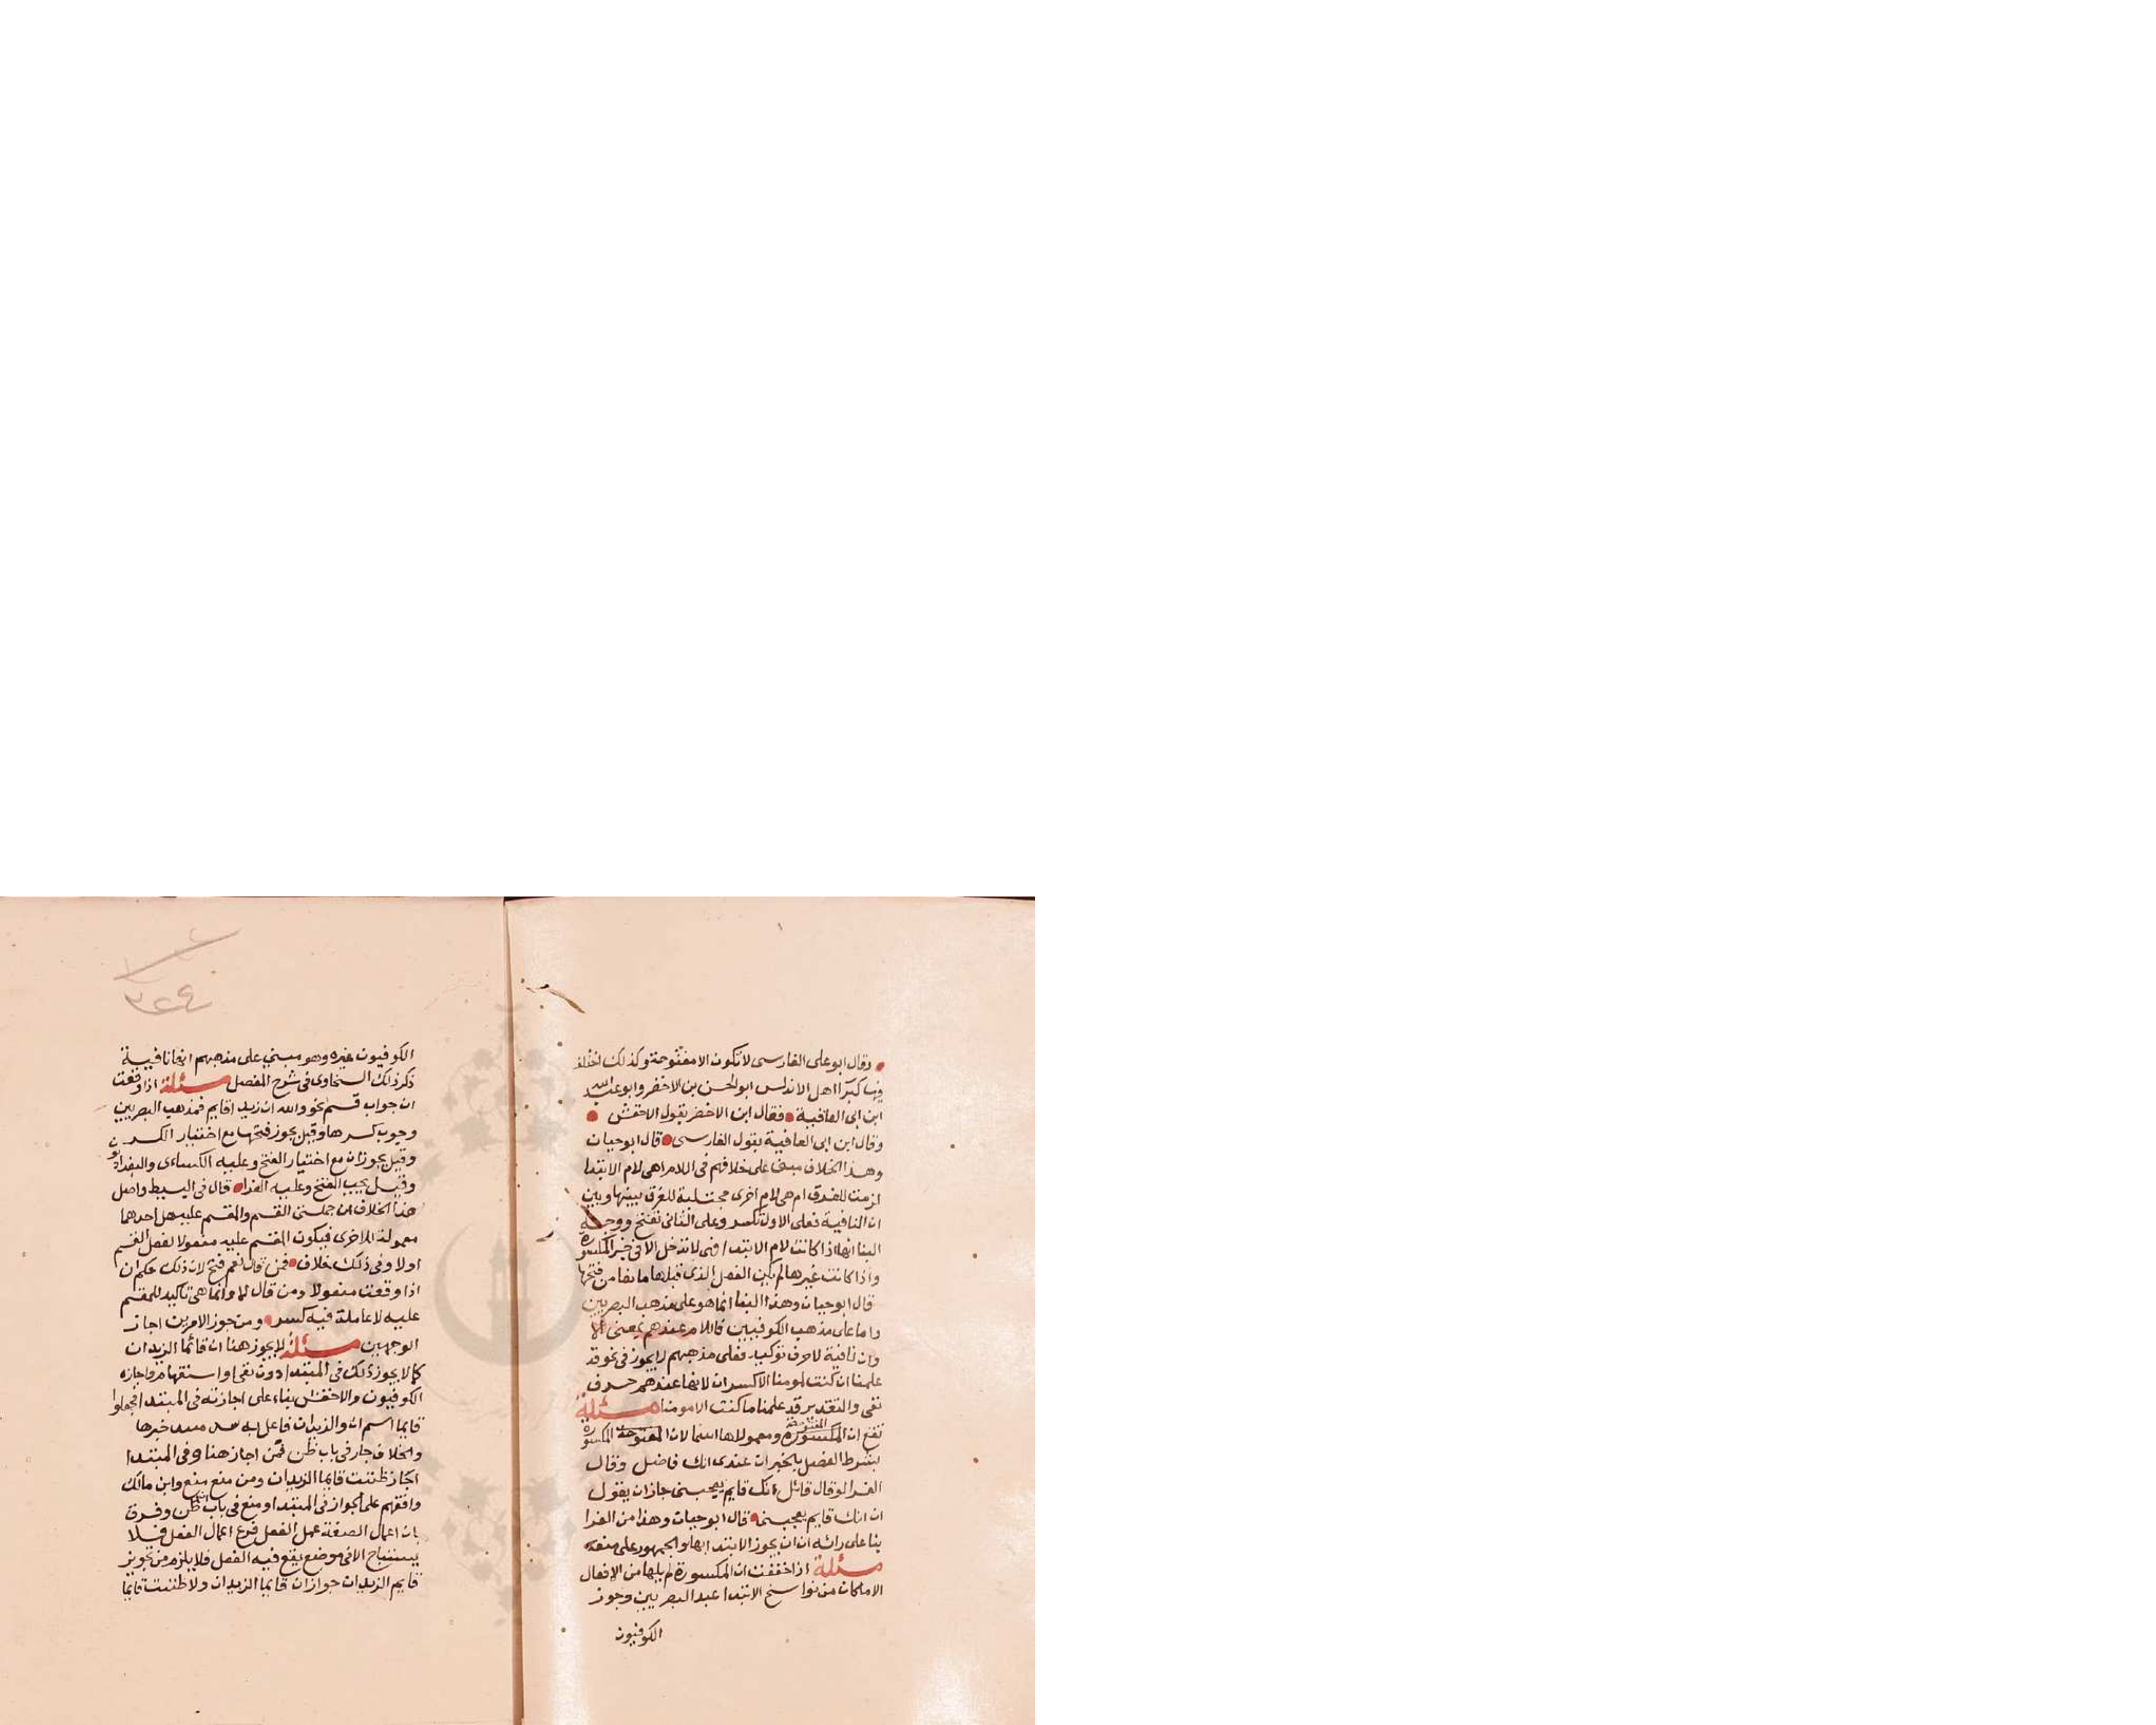 وقال ابو على الفارسى لا تكون الا مفتوحة وكذلك اختلف
فيها كبرآ اهل الاندلس ابو الحسن بن الاخضر وابو عبد الله
ابن ابى العافية فقال ابن الاخضر بقول الاخفش
وقال ابن ابى العافية بقول الفارسى قال ابو حيان
وهذا الخلاف مبنى على خلافهم فى اللام اهى لام الابتدا
لزمت للفرق ام هى لام اخرى مجتلبة للفرق بينها وبين
ان النافية فعلى الاول تكسر وعلى الثانى تفتح ووجه
البنا انها اذا كانت لام الابتدا فهى لا تدخل الا فى خبر المكسورة
واذا كانت غيرها لم يكن الفعل الذى قبلها مانعا من فتحها
قال ابو حيان وهذا البنا انما هو على مذهب البصريين
واما على مذهب الكوفيين فاللام عندهم بمعنى الا
وان نافية لا حرف توكيد فعلى مذهبهم لا يجوز فى نحو قد
علمنا ان كنت لمومنا الا كسر ان لانها عندهم حرف
نفى والتقدير قد علمنا ما كنت الا مومنا مسئلة
تقع ان المكسورة المفتوحة ومعمولاها اسما لان المفتوحة المكسورة
بشرط الفصل بالخبر ان عندى انك فاضل وقال
الفرا لو قال قائل انك قايم يعجبنى جاز ان يقول
ان انك قايم يعجبنى قال ابو حيان وهذا من الفرا
بنا على رائه ان ان يجوز الابتدا بها والجمهور على منعه
مسئلة اذا خففت ان المكسورة لم يلها من الافعال
الا ما كان من نواسخ الابتدا عند البصريين وجوز
الكوفيون
الكوفيون غيره وهو مبنى على مذهبهم انها نافية
ذكر ذلك السخاوى فى شرح المفصل مسئلة اذا وقعت
ان جواب قسم نحو والله ان زيدا قايم فمذهب البصريين
وجوب كسرها وقيل يجوز فتحها مع اختيار الكسر
وقيل يجوزان مع اختيار الفتح وعليه الكساءى والبغداديون
وقيل يجب الفتح وعليه الفرا قال فى البسيط واصل
هذا الخلاف ان جملتى القسم والمقسم عليه هل احدهما
معمولة للاخرى فيكون المقسم عليه مفعولا لفعل القسم
اولا وفى ذلك خلاف فمن قال نعم فتح لان ذلك حكم ان
اذا وقعت مفعولا ومن قال لا وانما هى تاكيد للمقسم
عليه لا عاملة فيه كسر ومن جوز الامرين اجاز
الوجهين مسئلة لا يجوز هنا ان قائما الزيدان
كما لا يجوز ذلك فى المبتدا دون نفى او استفهام واجازه
الكوفيون والاخفش بناء على اجازته فى المبتدا فجعلوا
قايما اسم ان والزيدان فاعل به سد مسد خبرها
والخلاف جار فى باب ظن فمن اجاز هنا وفى المبتدا
اجاز ظننت قايما الزيدان ومن منع منع وابن مالك
وافقهم على الجواز فى المبتدا ومنع فى باب ان ظن وفرق
بان اعمال الصفة عمل الفعل فرع اعمال الفعل فلا
يستباح الا فى موضع يقع فيه الفعل فلا يلزم من تجويز
قايم الزيدان جواز ان قايما الزيدان ولا ظننت قايما